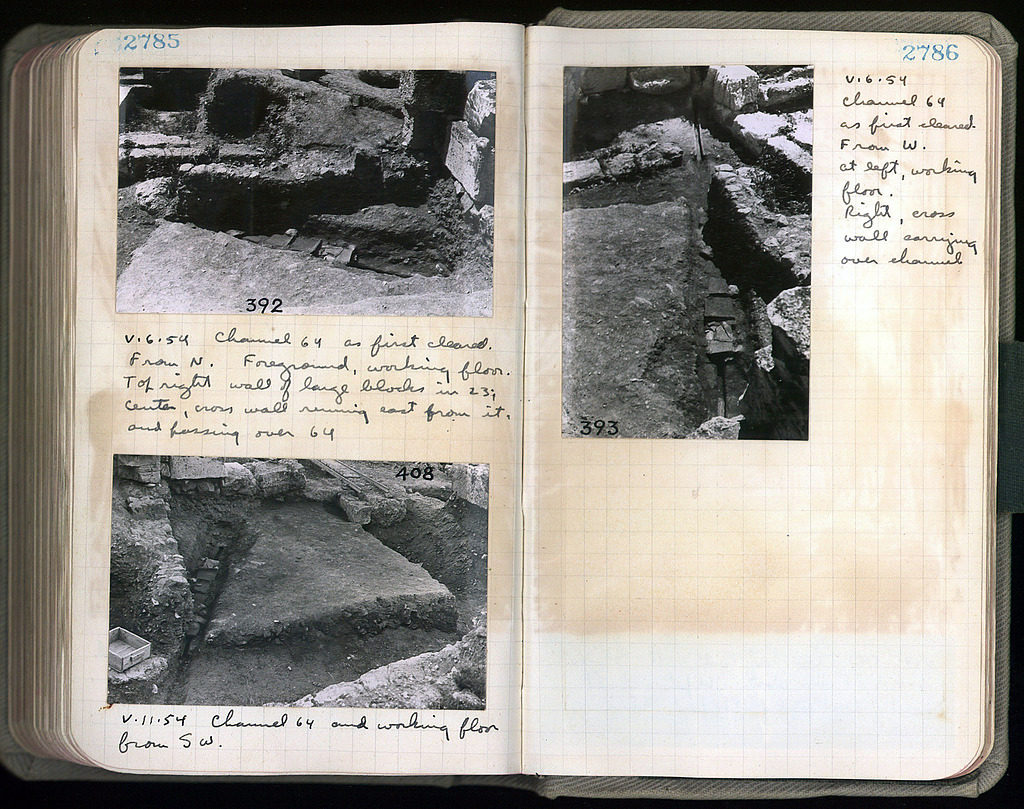 2785
392
V.6.54 Channel 64 as first cleared.
From N. Foreground, working floor.
Top right wall of large blocks in 23;
center, cross wall running east from it,
and passing over 64
408
V.11.54 Channel 64 and working floor
from SW.
2786
393
V.6.54
Channel 64
as first cleared.
From W.
at left, working
floor.
Right, cross
wall carrying
over channel